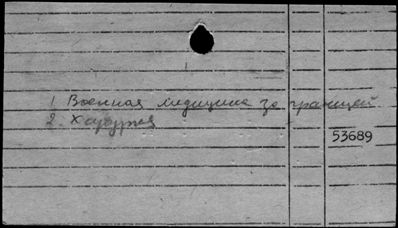 1 Военная медицина за границей
2. Хирургия
53689